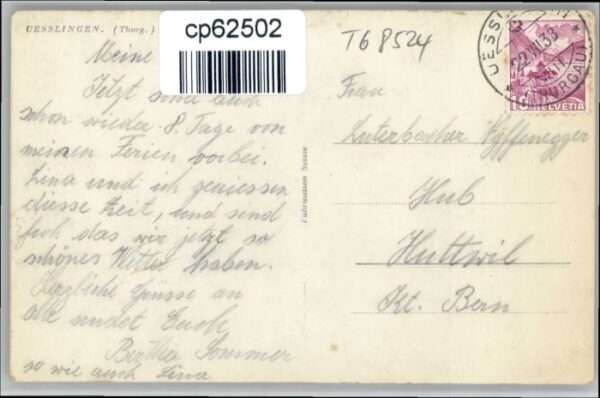 UESSLINGEN. (Thurg.)
cp62502
T68524
Meine
Jetzt sind auch
schon wieder 8. Tage von
meinen Ferien vorbei.
Lina und ich geniessen
diese Zeit, und sind
froh das wir jetzt so
schönes Wetter haben.
Herzliche Grüsse an
alle sendet Euch
Bertha Sommer
so wie auch Lina
Frau
Luterbacher Nyffenegger
Hub
Huttwil
Kt. Bern
Fabrication Suisse
HELVETIA